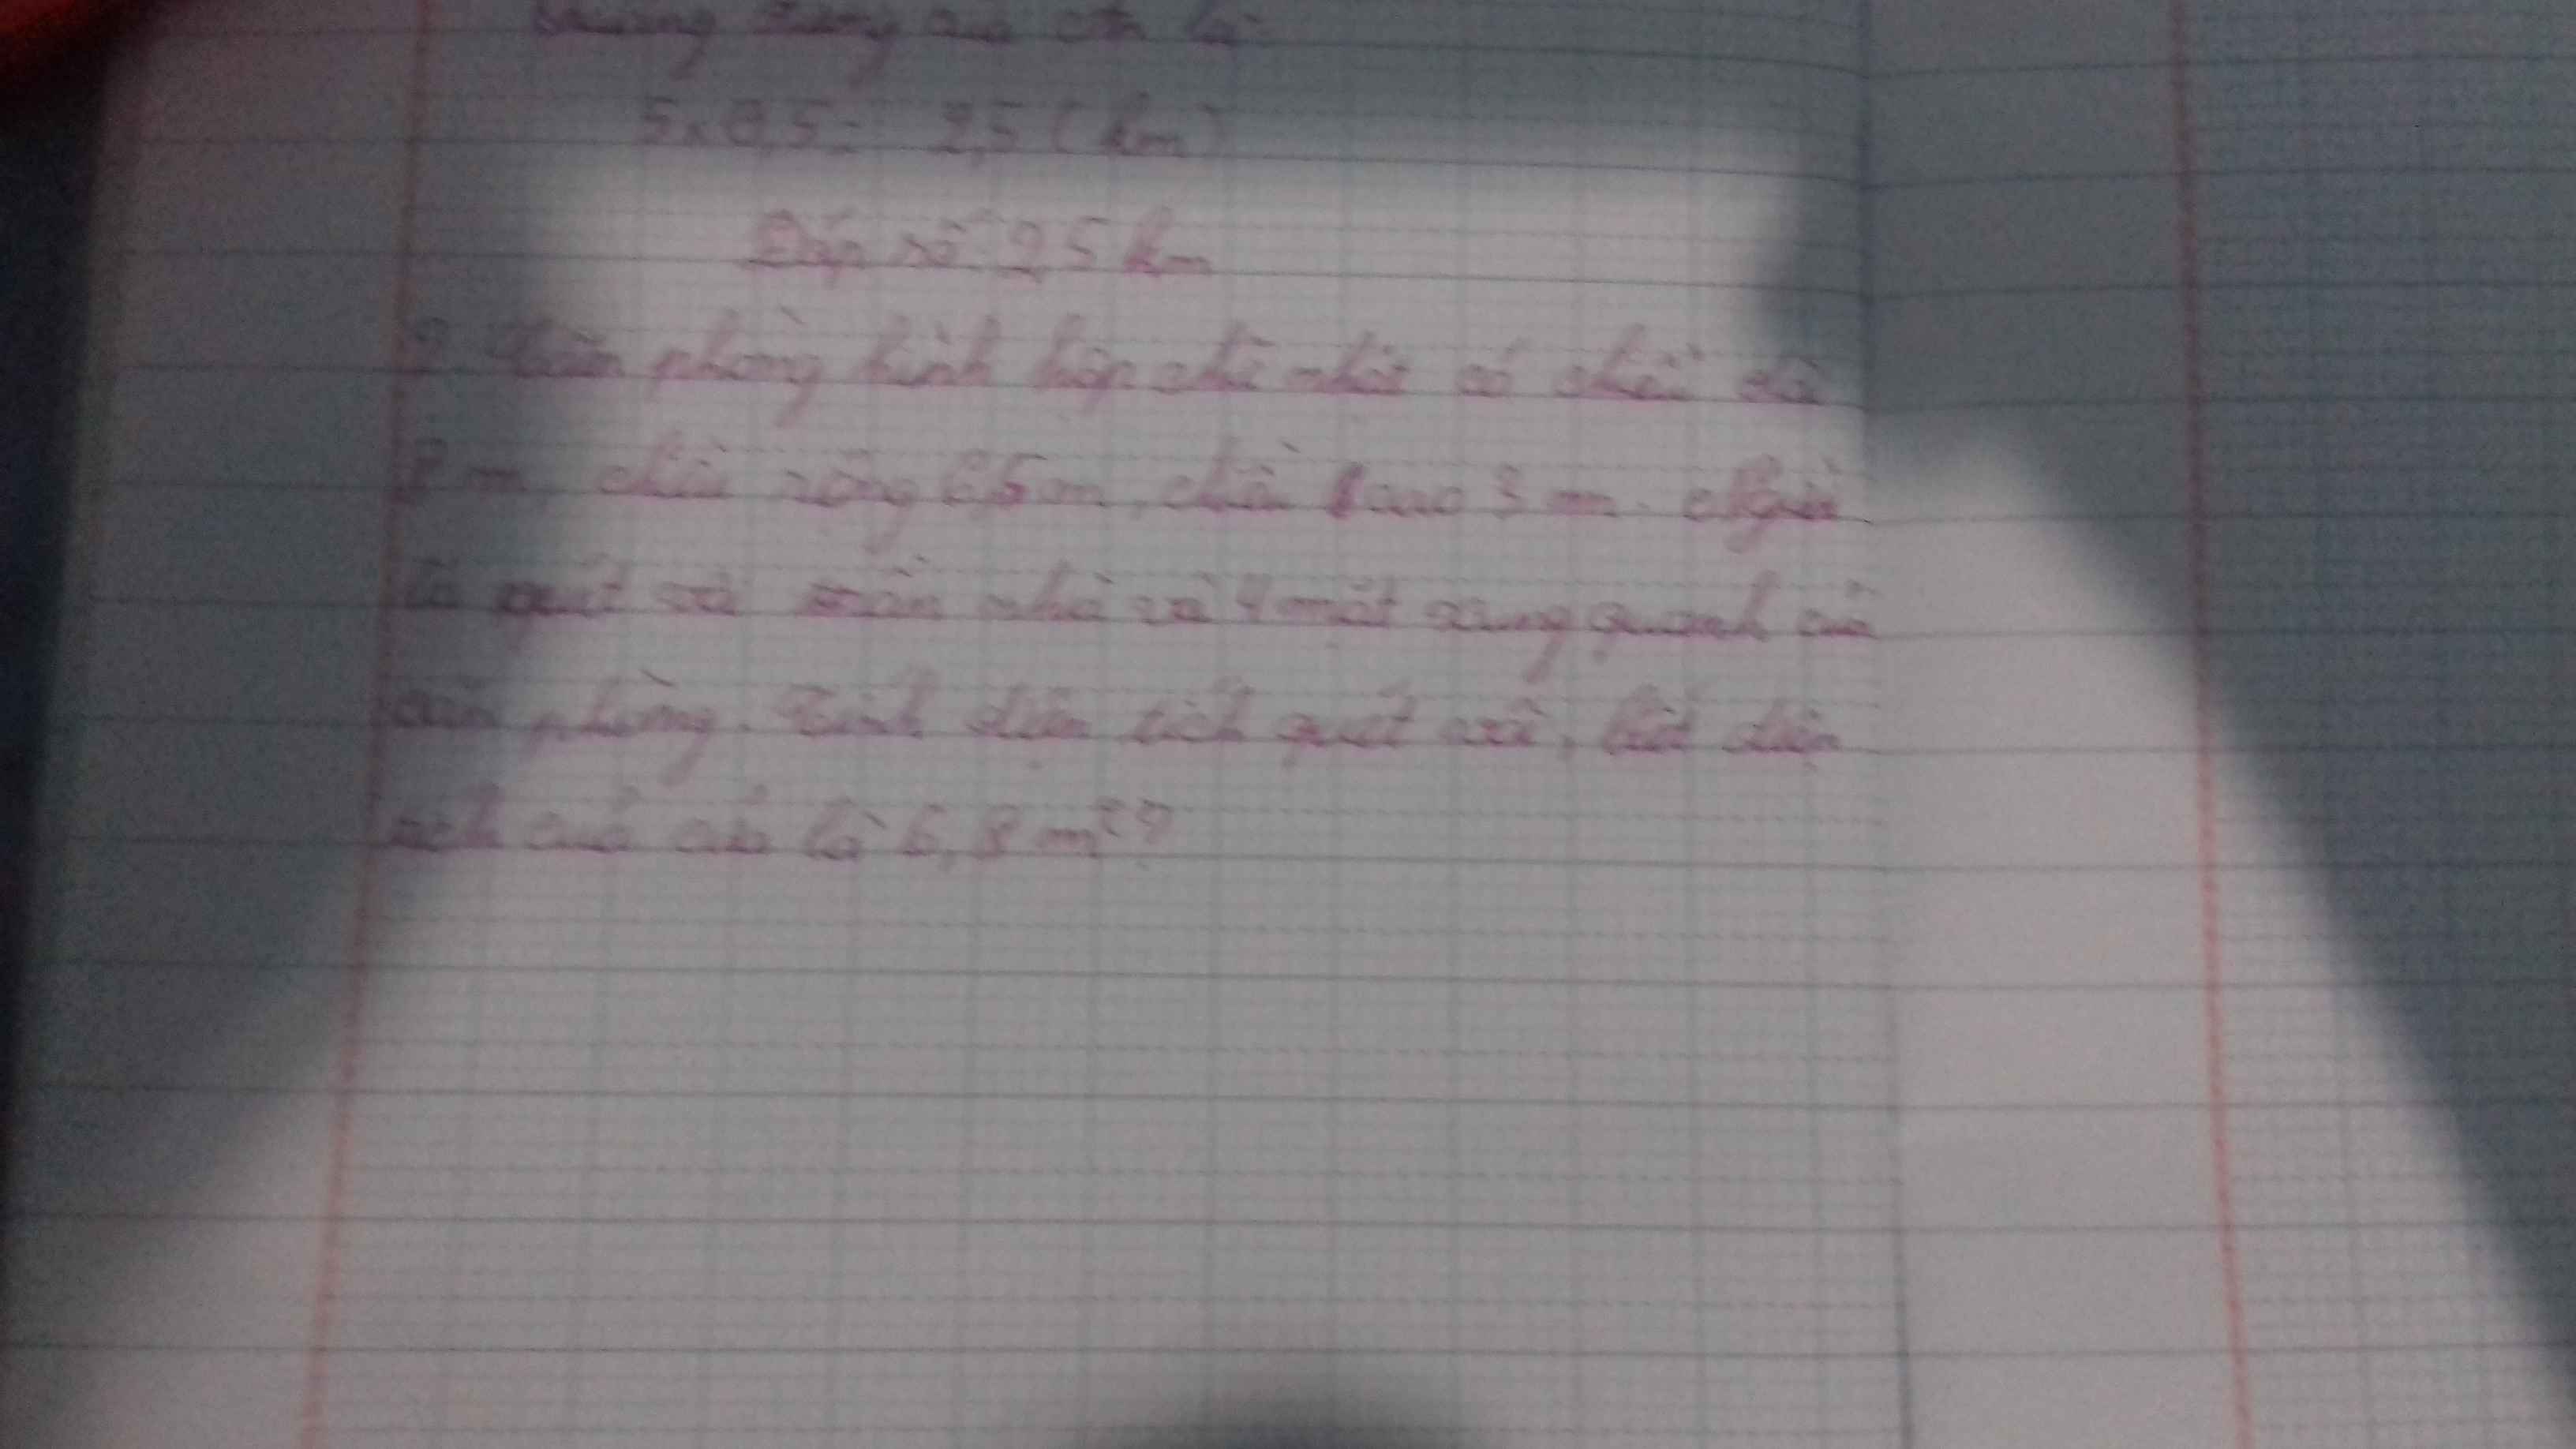 Quãng đường còn là:
5 x 0,5 = 2,5 (km)
Đáp số: 2,5 km
2. Căn phòng hình hộp chữ nhật có chiều dài
m chiều rộng 6,5 m, chiều cao 3 m. Người
ta quét vôi trần nhà và 4 mặt xung quanh của
căn phòng. Tính diện tích quét vôi, biết diện
tích cửa là 6,8 m²?